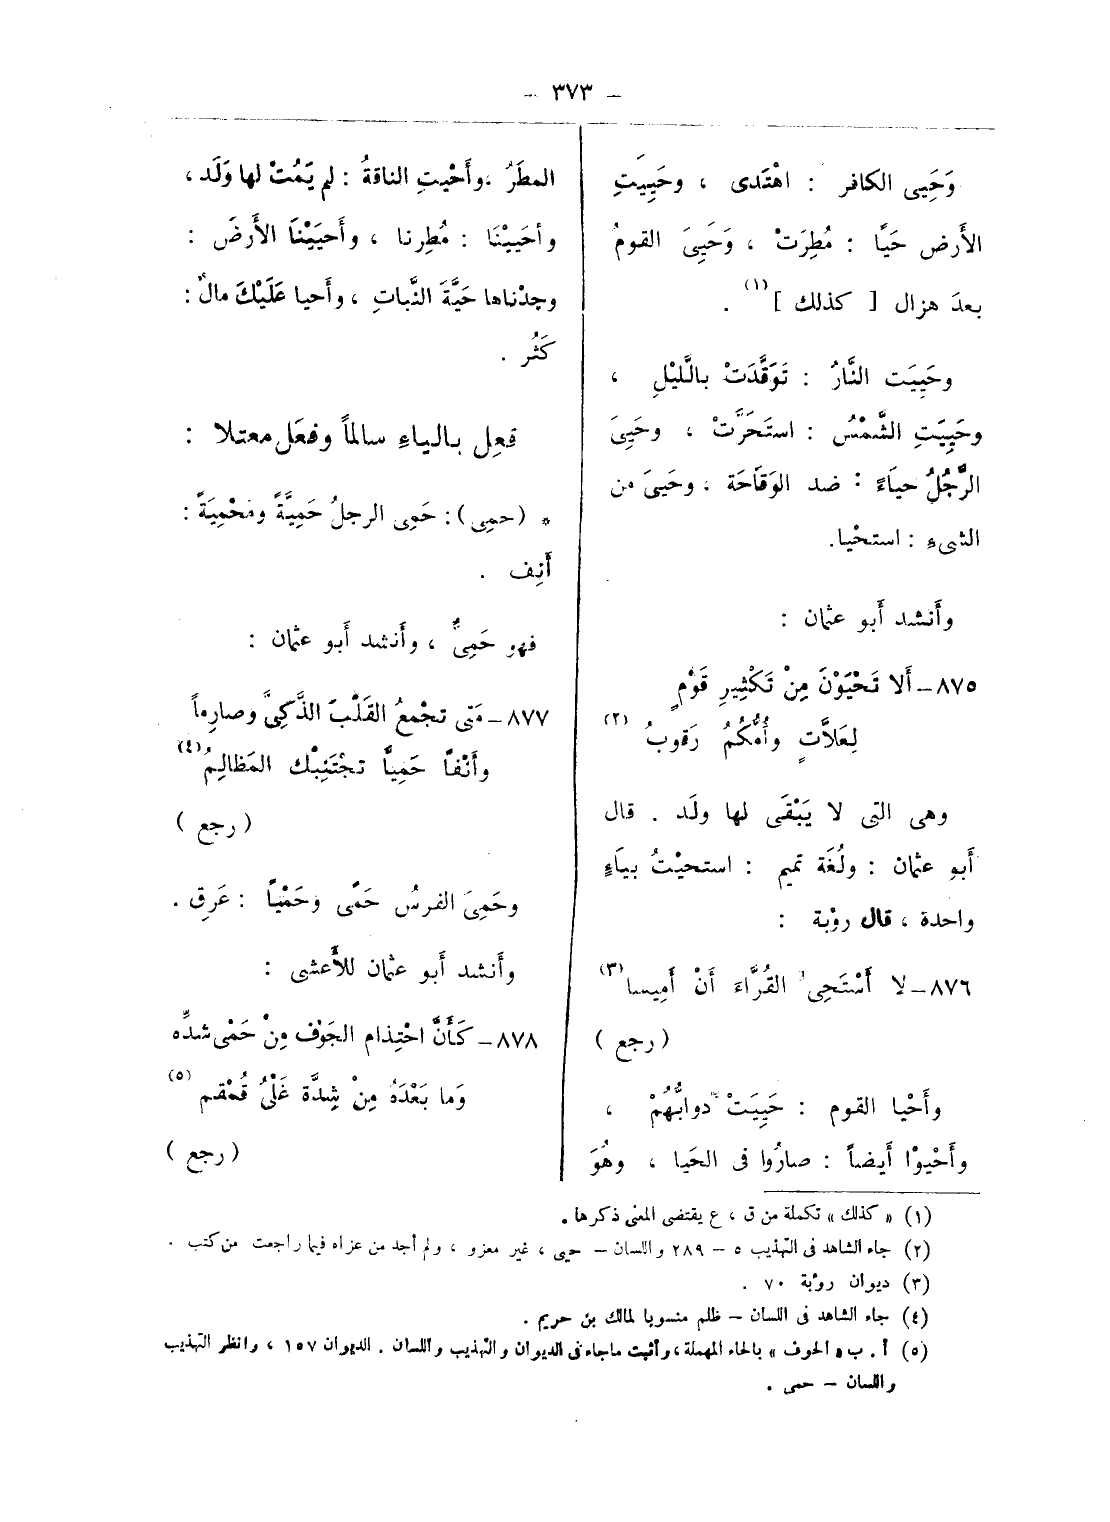 – ٣٧٣ –
وَحَيِىَ الكافر : اهْتَدى ، وحَيِيَتِ
الأَرض حَيًا : مُطِرَتْ ، وَحَيِىَ القومُ
بعدَ هزال [ كذلك ] (١) .
وحَيِيَت النَّارُ : تَوَقَّدَتْ باللَّيْلِ ،
وحَيِيَتِ الشَّمْسُ : استَحَرَّتْ ، وحَيِىَ
الرَّجُلُ حياءً : ضد الوَقَاحَة ، وحَيىَ من
الشىءِ : استحْيا.
وأَنشد أَبو عثمان :
٨٧٥ – أَلا تَحْيَوْنَ مِنْ تَكْثِيرِ قَوْمٍ
لِعَلاَّتٍ وأُمُّكُمُ رَقوبُ (٢)
وهى التى لا يَبْقَى لها ولَد . قال
أَبو عثمان : ولُغَة تميم : استحيْتُ بيَاءٍ
واحدة ، قال رؤبة :
٨٧٦ – لا أَسْتَحِى القُرَّاءَ أَنْ أَمِيسا (٣)
( رجع )
وأَحْيا القوم : حَيِيَتْ دوابُّهُمْ ،
وأَحْيوْا أَيضاً : صارُوا فى الحَيا ، وهُوَ
المطَرُ ، وأَحْيتِ الناقةُ : لم يَمُتْ لها وَلَد ،
وأحيَيْنَا : مُطِرنا ، وأَحيَيْنا الأَرضَ :
وجدْناها حَيَّةَ النَّباتِ ، وأَحيا عَلَيْكَ مالٌ :
كَثُر .
فعِل بالياءِ سالماً وفعَل معتلا :
* (حمِى) : حَمِى الرجلُ حَمِيَّةً ومَحْمِيَةً :
أَنِف .
فهو حَمِىٌّ ، وأَنشد أَبو عثمان :
٨٧٧ – مَتى تجْمعُ القَلْبَ الذَّكِىَّ وصارِماً
وأَنْفاً حَمِياًّ تجْتَنِبْك المَظالِمُ (٤)
( رجع )
وحَمِىَ الفرسُ حَمًى وحَمْياً : عَرِق .
وأَنشد أَبو عثمان للأَعشى :
٨٧٨ – كَأَنَّ احْتِدام الجَوْف مِنْ حَمْى شدِّه
وَما بَعْدَهُ مِنْ شِدَّة غَلْىُ قُمْقم (٥)
( رجع )
(١) « كذلك » تكملة من ق ، ع يقتضى المعنى ذكرها .
(٢) جاء الشاهد فى التهذيب ٥ – ٢٨٩ واللسان – حيى ، غير معزو ، ولم أجد من عزاه فيما راجعت من كتب .
(٣) ديوان رؤبة ٧٠ .
(٤) جاء الشاهد فى اللسان – ظلم منسوبا لمالك بن حريم .
(٥) أ . ب « الحوف » بالحاء المهملة ، وأثبت ماجاء فى الديوان والتهذيب واللسان . الديوان ١٥٧ ، وانظر التهذيب
واللسان – حمى .